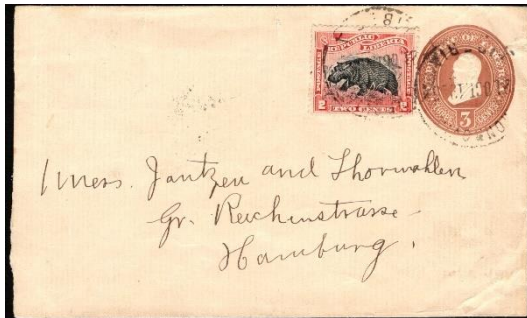 REPUBLIC LIBERIA
POSTAGE POSTAGE
2 2
TWO CENTS
3
Mess. Jantzen and Thorwahlen
Gr. Reichenstrasse
Hamburg.